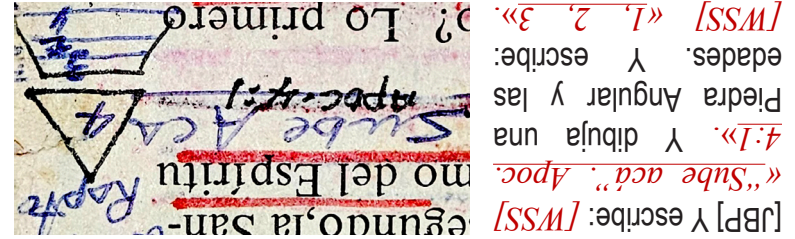 [JBP] Y escribe: [WSS]
«“Sube acá”. Apoc.
4:1». Y dibuja una
Piedra Angular y las
edades. Y escribe:
[WSS] «1, 2, 3».
egundo, la San-
mo del Espíritu
Rapto
Sube Acá
4
Apoc. 4:1
o? Lo primero
3
2
1